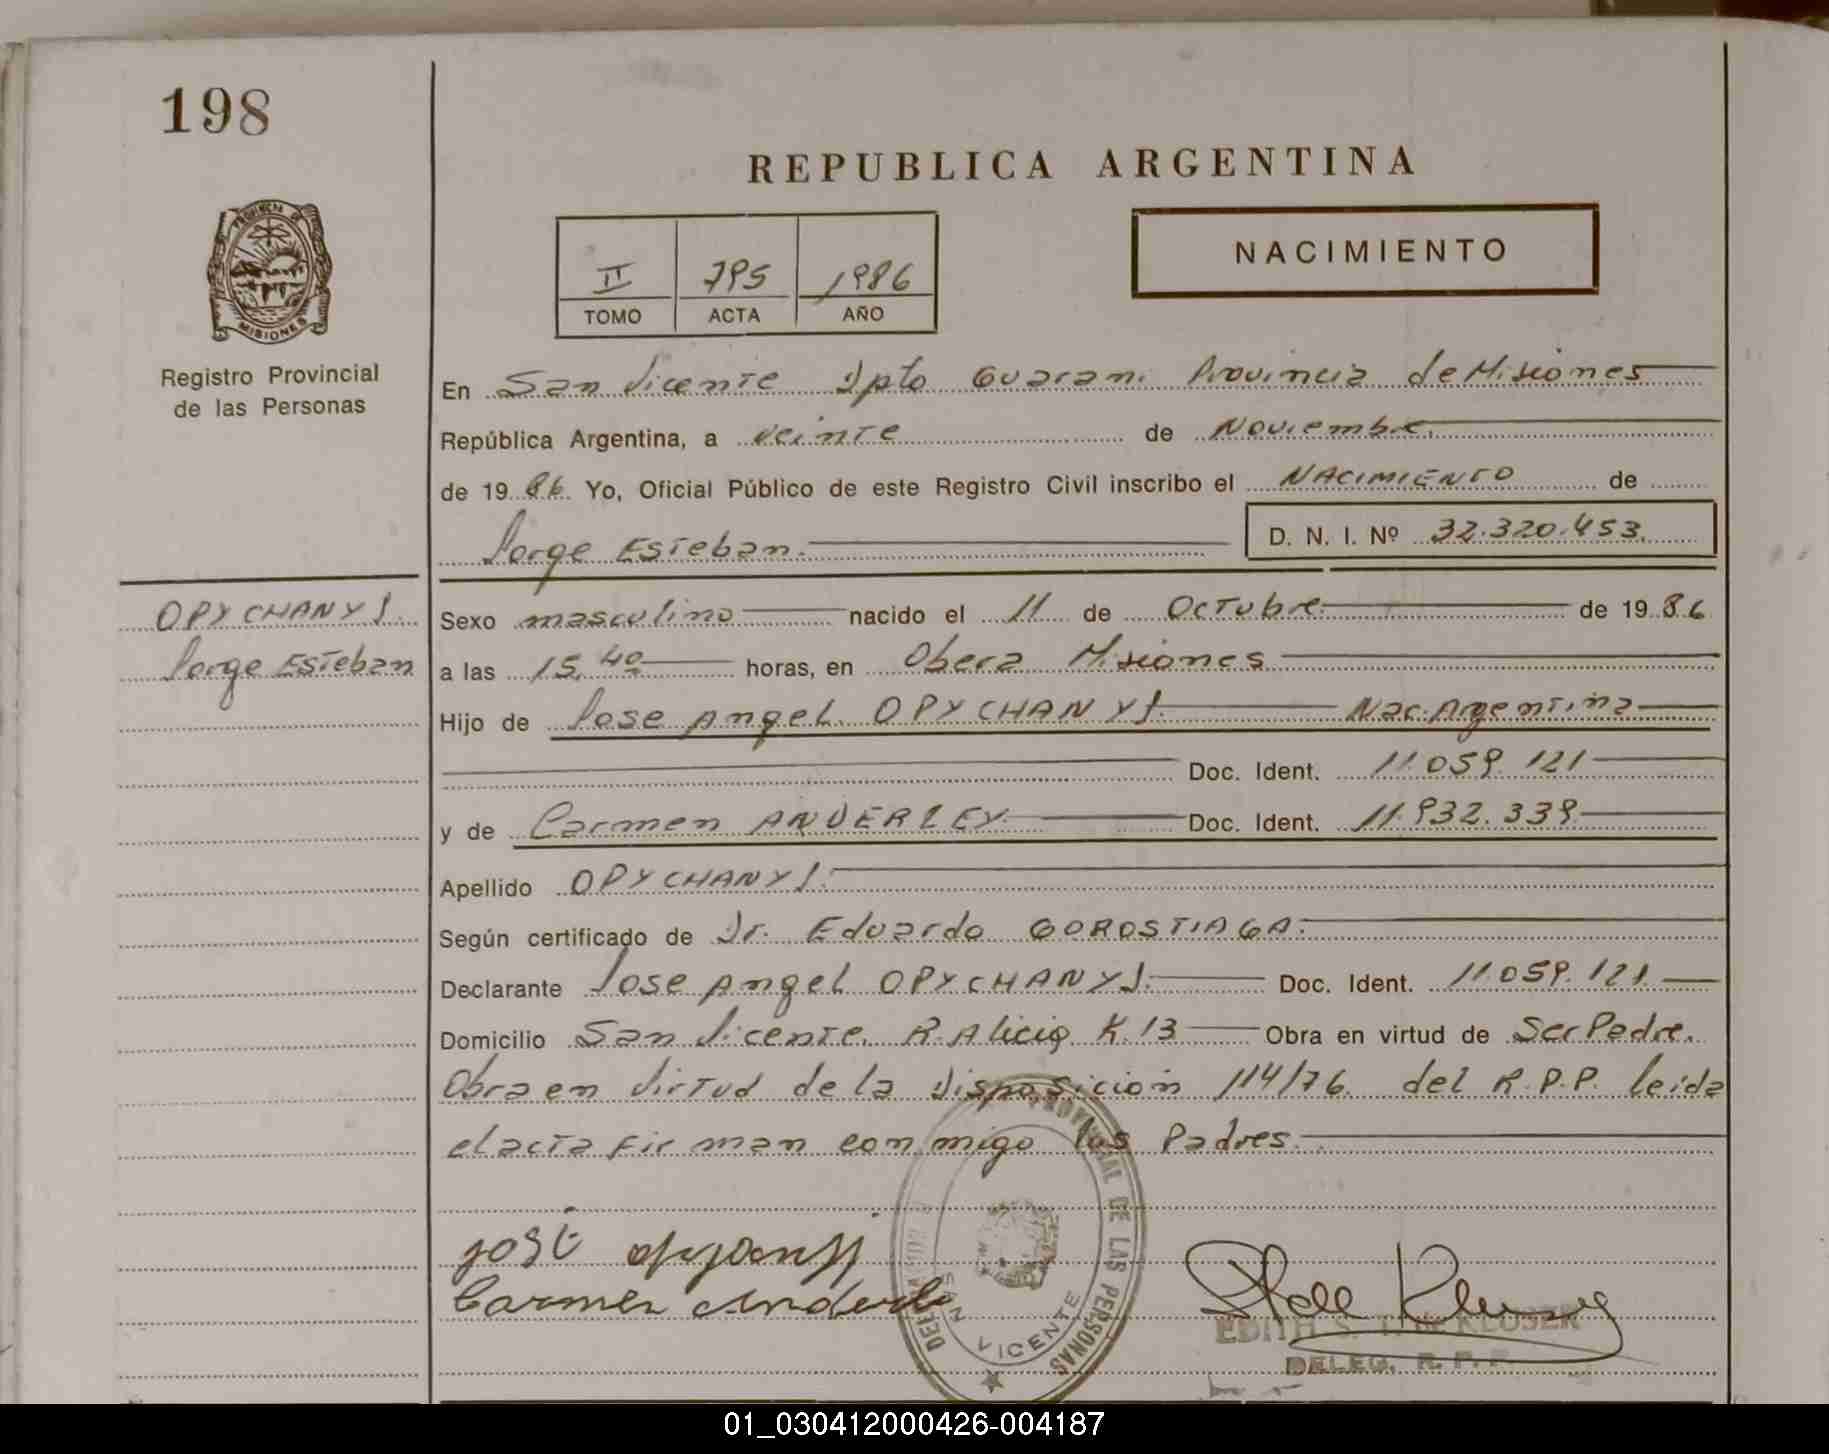 198
REPUBLICA ARGENTINA
PROVINCIA DE
MISIONES
Registro Provincial
de las Personas
NACIMIENTO
II 795 1986
TOMO ACTA AÑO
En San Vicente Dpto Guarani Provincia de Misiones
República Argentina, a veinte de Noviembre.
de 1986. Yo, Oficial Público de este Registro Civil inscribo el NACIMIENTO de
Jorge Esteban. D. N. I. Nº 32.320.453.
OPYCHANYJ.
Jorge Esteban
Sexo masculino nacido el 11 de Octubre. de 1986
a las 15,40 horas, en Obera Misiones
Hijo de Jose Angel OPYCHANYJ. Nac. Argentina
Doc. Ident. 11.059.121
y de Carmen ANDERLEY Doc. Ident. 11.932.339
Apellido OPYCHANYJ.
Según certificado de Dr. Eduardo GOROSTIAGA.
Declarante Jose Angel OPYCHANYJ. Doc. Ident. 11.059.121.
Domicilio San Vicente. R. Alicia K.13 Obra en virtud de Ser Padre.
Obra en virtud de la Disposicion 114/76. del R.P.P. leida
el acta firman conmigo los Padres.
José
Carmen
PROVINCIAL DE LAS PERSONAS
SAN VICENTE
EDITH S. T. de KLUSER
DELEG. R. P. P.
01_030412000426-004187